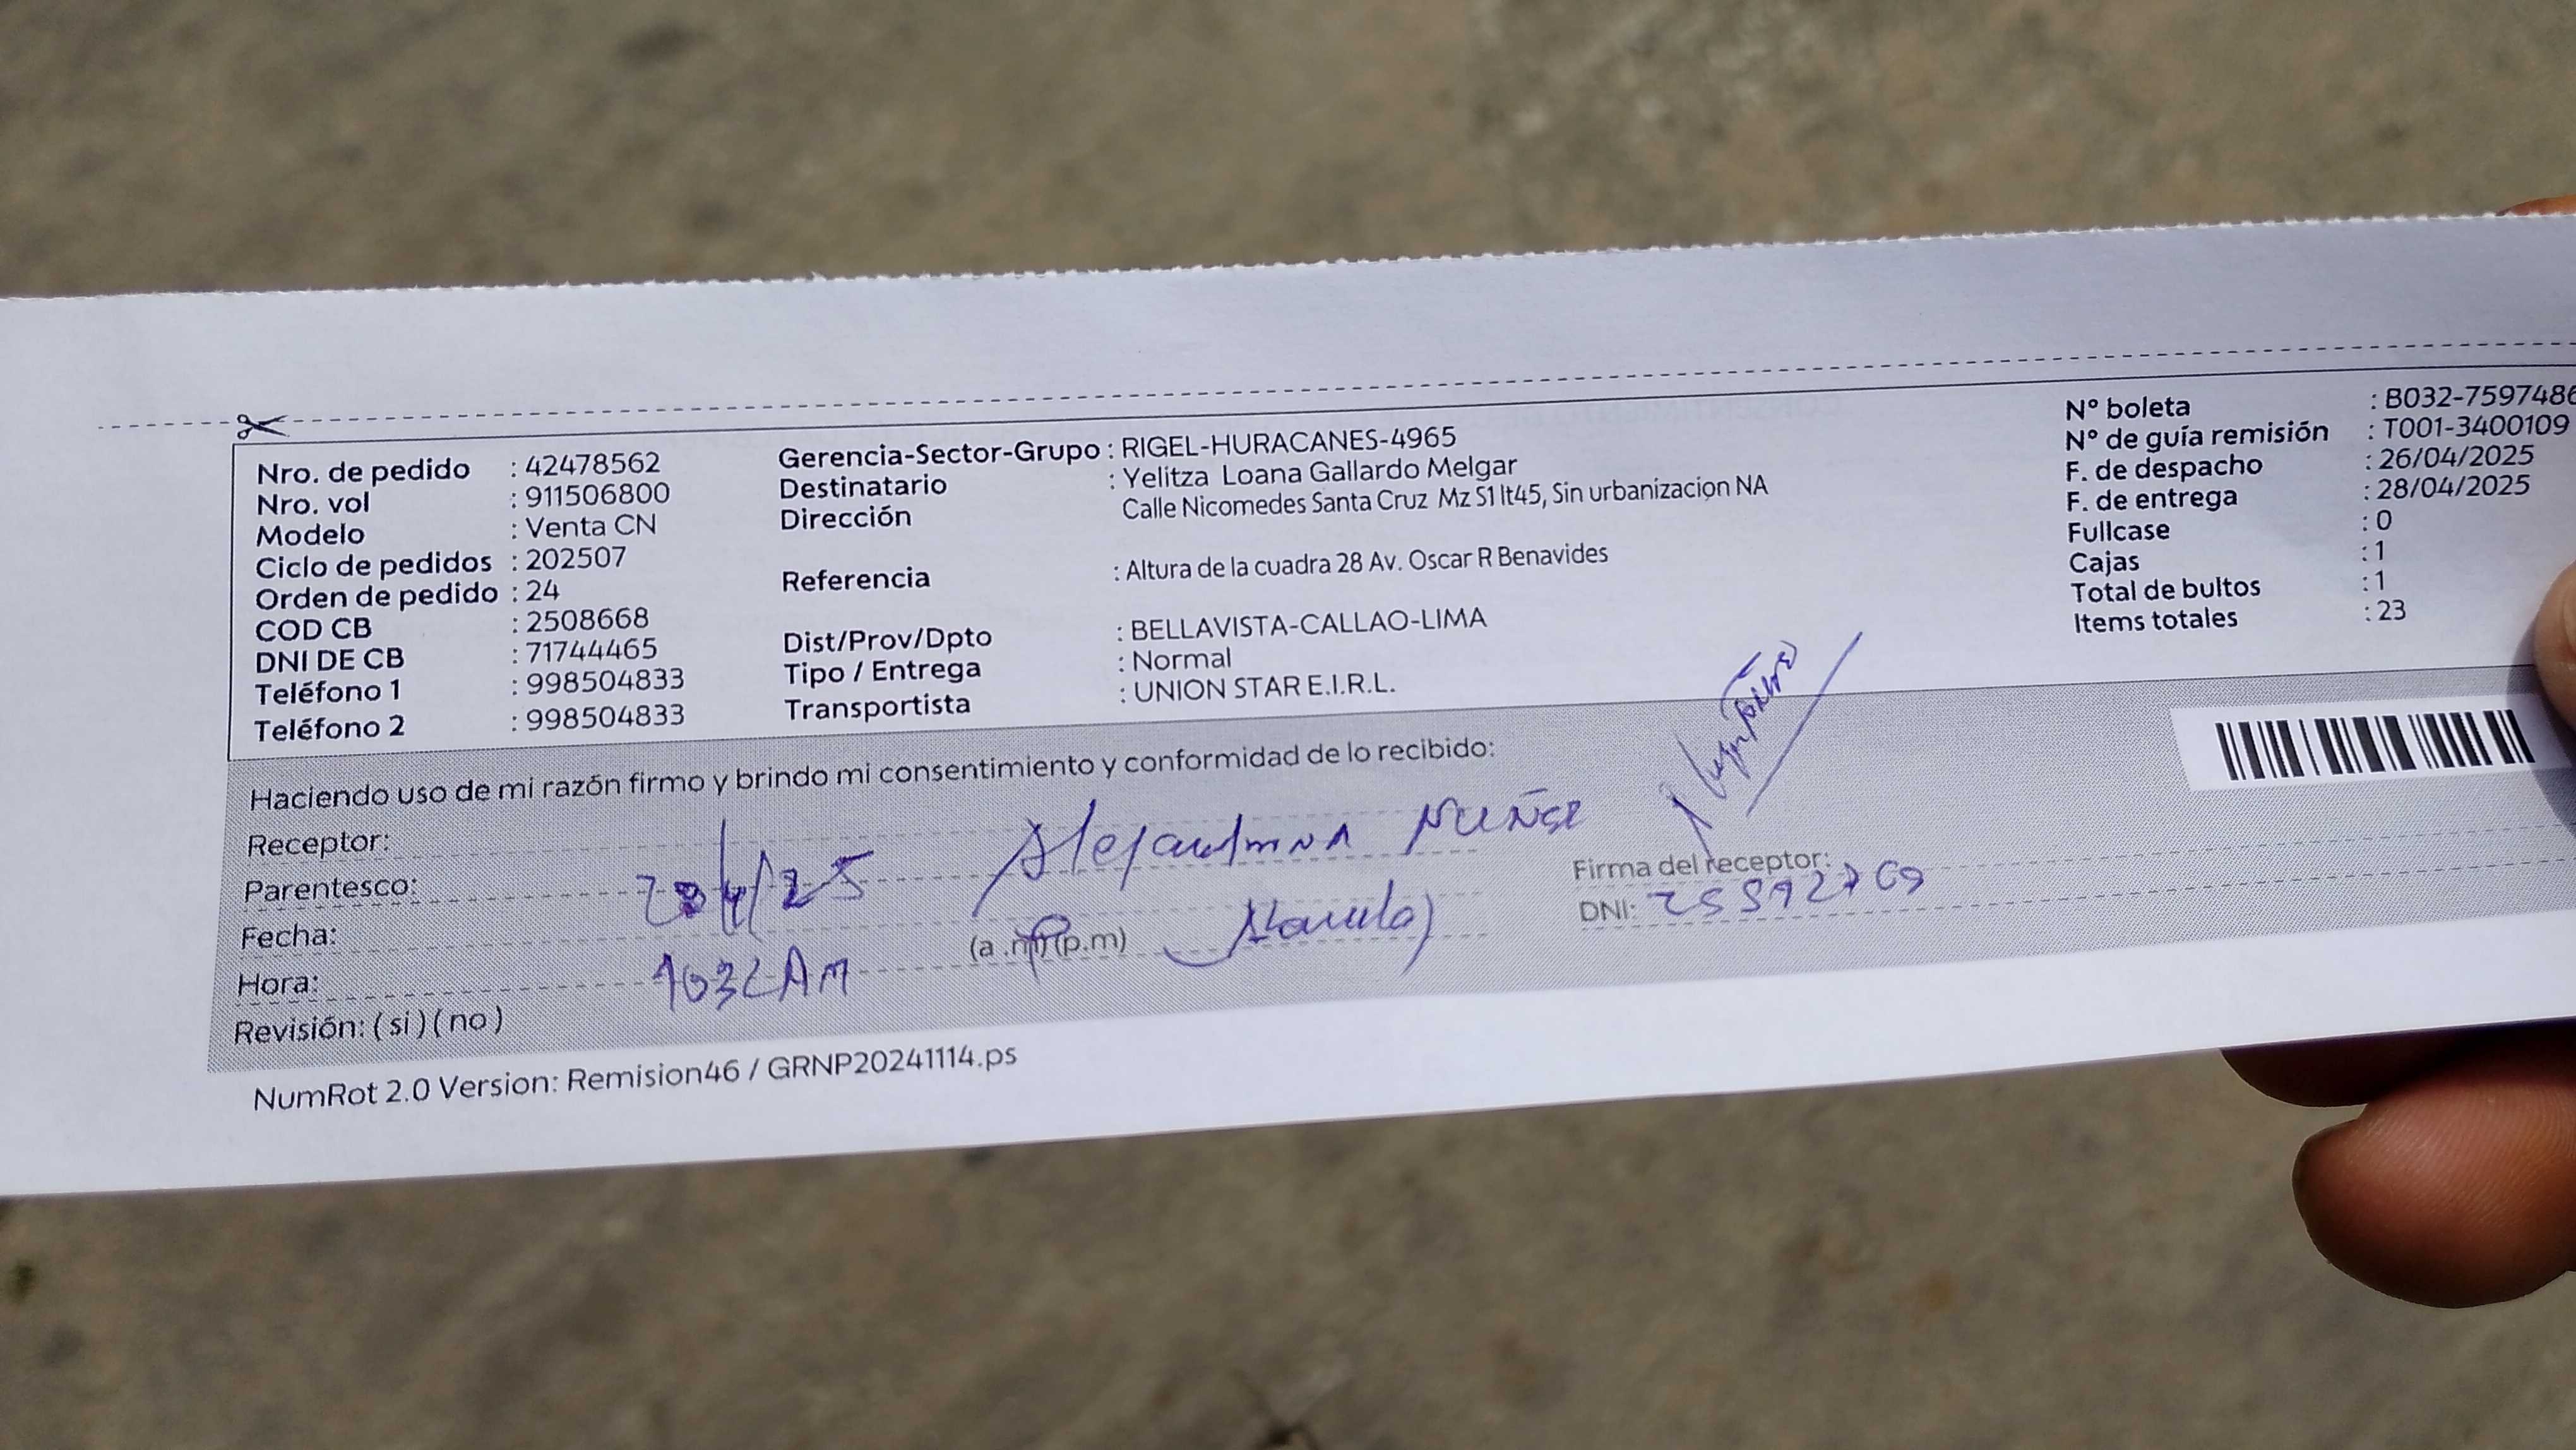 Nro. de pedido : 42478562
Nro. vol : 911506800
Modelo : Venta CN
Ciclo de pedidos : 202507
Orden de pedido : 24
COD CB : 2508668
DNI DE CB : 71744465
Teléfono 1 : 998504833
Teléfono 2 : 998504833
Gerencia-Sector-Grupo : RIGEL-HURACANES-4965
Destinatario : Yelitza Loana Gallardo Melgar
Dirección Calle Nicomedes Santa Cruz Mz S1 lt45, Sin urbanizacion NA
Referencia : Altura de la cuadra 28 Av. Oscar R Benavides
Dist/Prov/Dpto : BELLAVISTA-CALLAO-LIMA
Tipo / Entrega : Normal
Transportista : UNION STAR E.I.R.L.
N° boleta : B032-7597486
N° de guía remisión : T001-3400109
F. de despacho : 26/04/2025
F. de entrega : 28/04/2025
Fullcase : 0
Cajas : 1
Total de bultos : 1
Items totales : 23
Haciendo uso de mi razón firmo y brindo mi consentimiento y conformidad de lo recibido:
Receptor: NUÑEZ
Parentesco:
Fecha:
Hora: 1032 AM (a.m) (p.m)
Revisión: ( si ) ( no )
Firma del receptor:
DNI:
NumRot 2.0 Version: Remision46 / GRNP20241114.ps